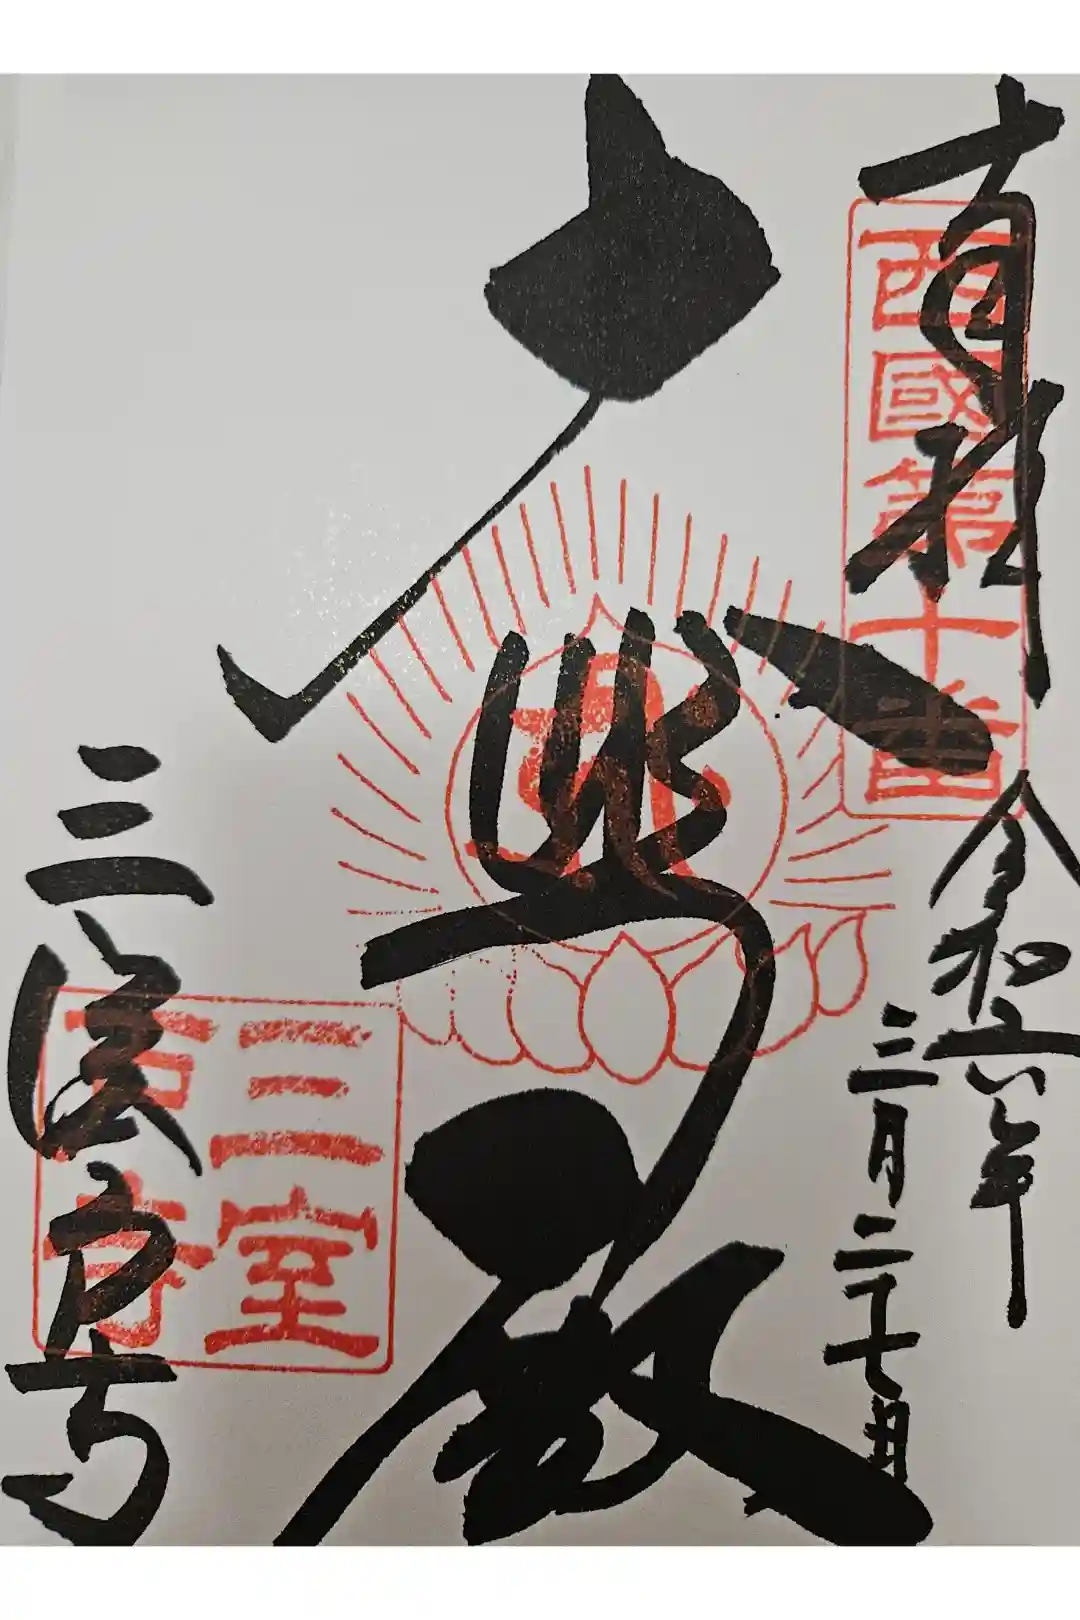 奉拝
西國第十番
令和六年
三月二十七日
三室戸寺
三室
戸寺